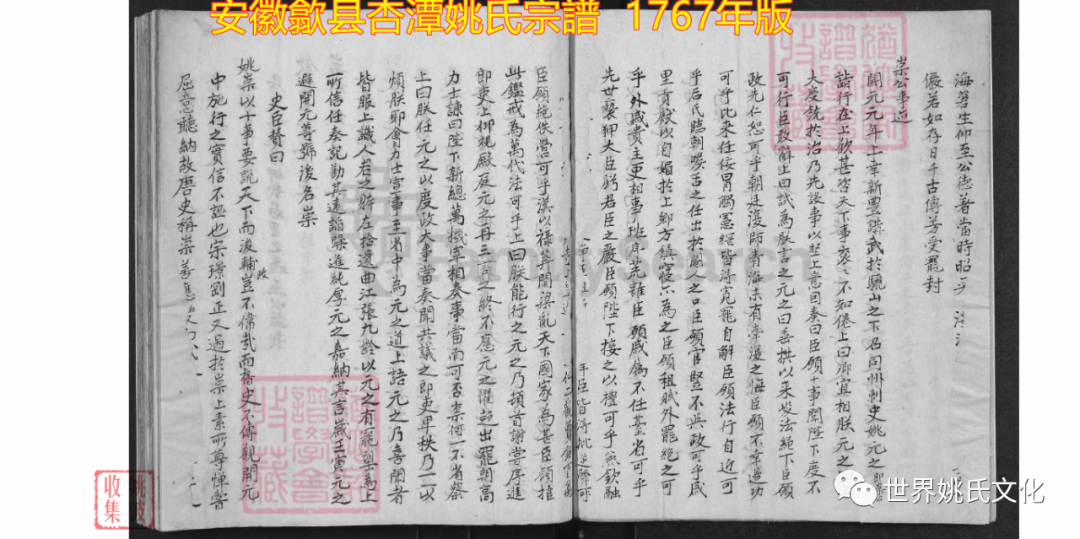 安徽歙县杏潭姚氏宗譜 1767年版
生仰至公德著當時昭
儼若如存日千古傳芳受寵封
崇公事迹
開元元年上幸新豐講武於驪山之下召同州刺史姚元之
詣行在上歡甚咨天下事袞袞不知倦上曰卿宜相朕元之
大度銳於治乃先設事以堅上意因奏曰臣願十事聞陛下度不
可行臣敢辭上曰試為朕言之元之曰垂拱以來峻法繩下臣願
政先仁恕可乎朝廷覆師青海未有牽復之悔臣願不幸邊功
可乎比來任佞冒觸憲綱皆得寵自解臣願法行自近可
乎后氏臨朝喉舌之任出於閹人之口臣願宦豎不與政可乎戚
里貢獻以自媚於上鄉方鎮寖亦為之臣願租賦外罷絕之可
乎外戚貴主更相事班序荒雜臣願戚屬不任臺省可乎
先世褻狎大臣虧君臣之嚴臣願陛下接之以禮可乎燕欽融
臣願絕佚營可乎漢以祿莽閻梁亂天下國家為甚臣願推
此鑑戒為萬代法可乎上曰朕能行之元之乃頓首謝嘗序進
郎吏上仰視殿庭元之再三言之終不應元之懼趨出罷朝高
力士諫曰陛下新總萬機宰相奏事當面可否奈何一不省察
上曰朕任元之以庶政大事當奏聞共議之郎吏卑秩乃一以
煩朕耶會力士宣事至省中為元之道上語元之乃喜聞者
皆服上識人君之體左拾遺曲江張九齡以元之有寵望為上
所信任奏記勸其遠謟躁進純厚元之嘉納其言歲壬寅元之
避開元尊號復名崇
史臣贊曰
姚崇以十事要說天下而後輔政豈不偉哉而舊史不傳觀開元
中施行之實信不誣也宋璟剛正又過於崇上素所尊憚常
屈意聽納故唐史稱崇善應變
收集
世界姚氏文化